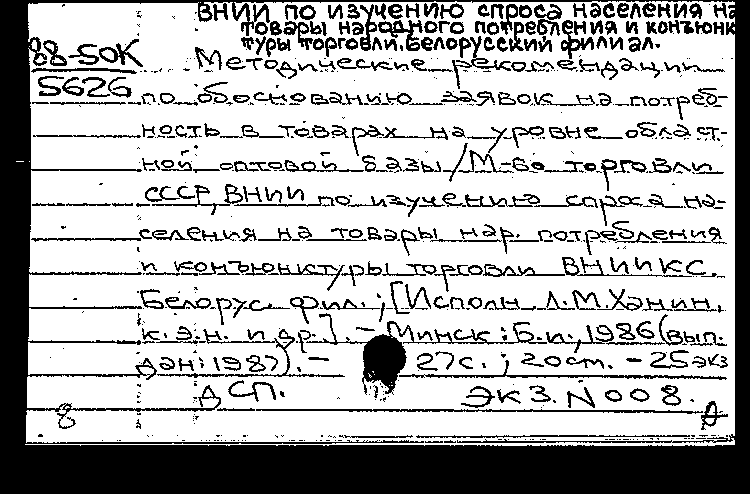 ВНИИ по изучению спроса населения на
товары народного потребления и конъюнк
туры торговли. Белорусский филиал.
88-50К
5626
Методические рекомендации
по обоснованию заявок на потреб-
ность в товарах на уровне област-
ной оптовой базы / М-во торговли
СССР, ВНИИ по изучению спроса на-
селения на товары нар. потребления
и конъюнктуры торговли ВНИИКС.
Белорус. фил.; [Исполн. Л.М.Хэнин,
к.э.н. и др.]. - Минск: Б.и., 1986 (вып.
дан: 1987). - 27с.; 20см. - 25экз
ДСП. ЭКЗ. N 008.
8